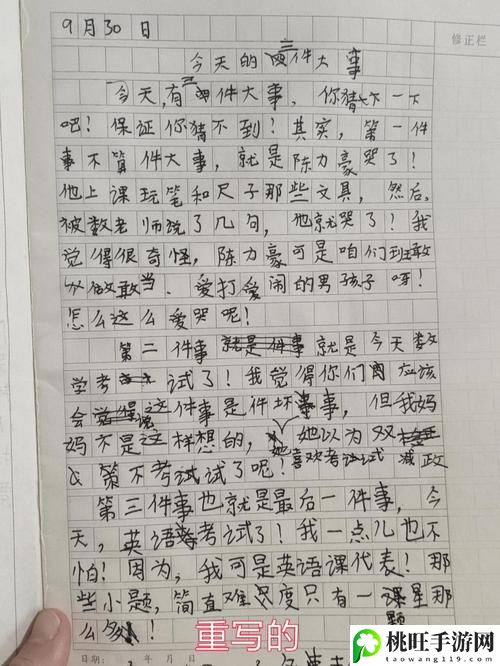 修正栏
9月30日
今天的三件大事
今天,有三件大事,你猜一下
吧!保证你猜不到!其实,第一件
事不算件大事,就是陈力豪哭了!
他上课玩笔和尺子那些文具,然后,
被数老师说了几句,他就哭了!我
觉得很奇怪,陈力豪可是咱们班敢
做敢当、爱打爱闹的男孩子呀!
怎么这么爱哭呢!
第二件事就是今天数
学考试了!我觉得你们应该
会觉得这件事是件坏事,但我妈
妈不是这样想的,她以为双减政
她喜欢考试
策不考试了呢!
第三件事也就是最后一件事,今
天,英语考试了!我一点儿也不
怕!因为,我可是英语课代表!那
些小题,简直难度只有一颗星那
么多!
重写的
日期: 年 月 日
桃旺手游网
www.taowang119.com